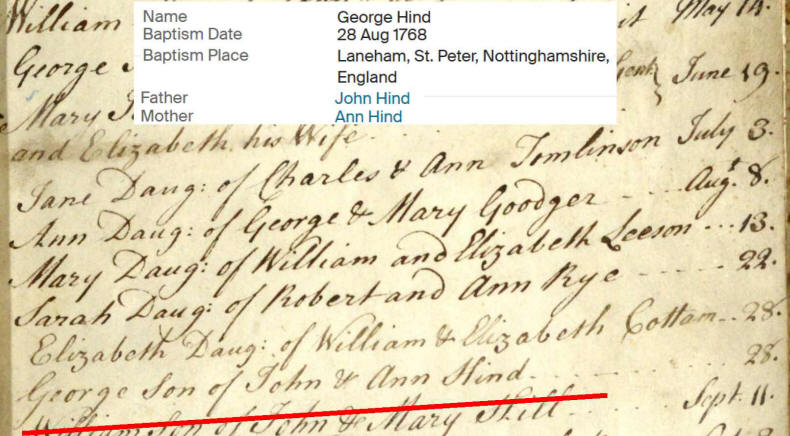 William
it May 14.
Name George Hind
Baptism Date 28 Aug 1768
Baptism Place Laneham, St. Peter, Nottinghamshire,
England
Father John Hind
Mother Ann Hind
George
Gent June 19.
Mary
and Elizabeth his Wife
July 3.
Jane Daug: of Charles & Ann Tomlinson
Augt. 8.
Ann Daug: of George & Mary Goodger
Mary Daug: of William and Elizabeth Leeson 13.
Sarah Daug: of Robert and Ann Rye 22.
Elizabeth Daug: of William & Elizabeth Cottam 28.
George Son of John & Ann Hind 28.
William Son of John & Mary Hill Sept. 11.